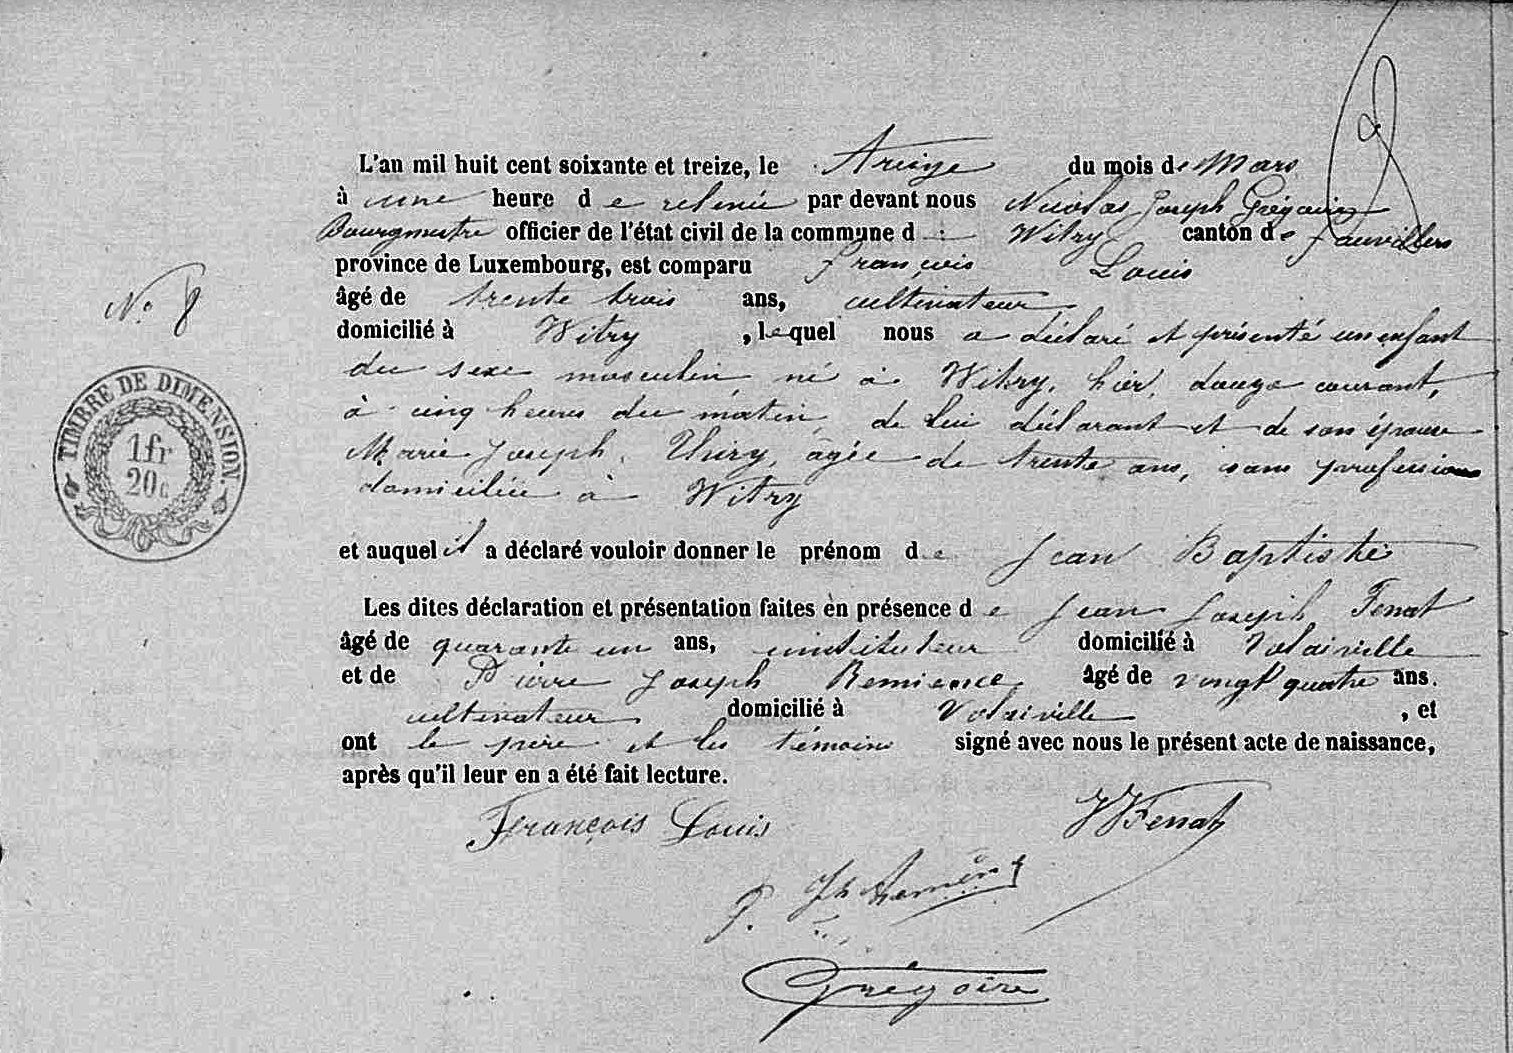 L'an mil huit cent soixante et treize, le treize du mois de Mars
à une heure de relevée par devant nous Nicolas Joseph Grégoire
Bourgmestre officier de l'état civil de la commune d : Witry canton de Fauvillers
province de Luxembourg, est comparu François Louis
âgé de trente trois ans, cultivateur
domicilié à Witry , lequel nous a déclaré et présenté un enfant
No 8
du sexe masculin, né à Witry, hier, douze courant,
à cinq heures du matin, de lui déclarant et de son épouse
Marie Joseph Thiry, agée de trente ans, sans profession
domiciliée à Witry
TIMBRE DE DIMENSION.
1fr
20c
et auquel il a déclaré vouloir donner le prénom de Jean Baptiste
Les dites déclaration et présentation faites en présence de Jean Joseph Fenat
âgé de quarante un ans, instituteur domicilié à Volaiville
et de Pierre Joseph Remience âgé de vingt quatre ans.
cultivateur domicilié à Volaiville , et
ont le père et les témoins signé avec nous le présent acte de naissance,
après qu'il leur en a été fait lecture.
François Louis JJ Fenat
P. Jh
Grégoire